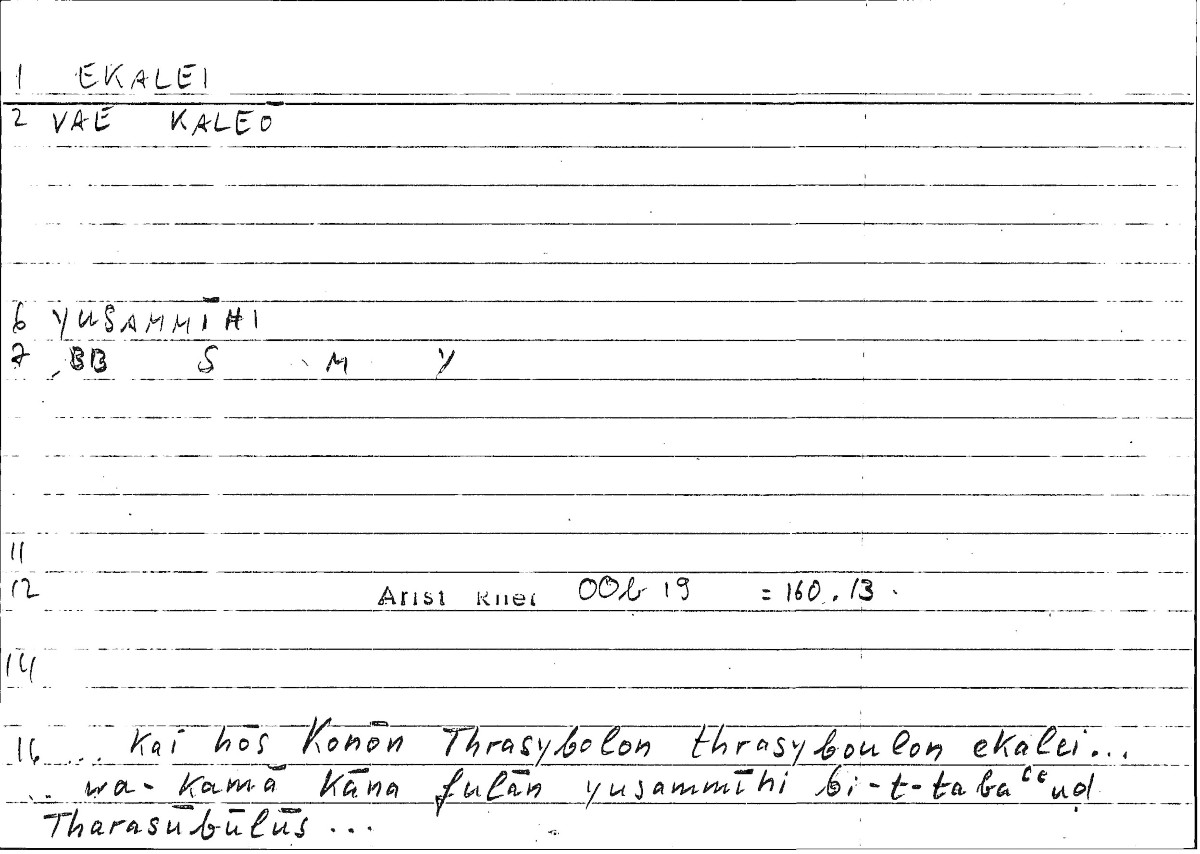 1 EKALEI
2 VAE KALEŌ
6 YUSAMMĪHI
7 BB S M Y
11
12 Arist Rhet 00b 19 = 160.13.
14
16 ... Kai hōs Konōn Thrasybolon thrasyboulon ekalei...
.. wa-kamā Kāna fulān yusammīhi bi-t-tabaʿʿuḍ
Tharasūbūlūs ...